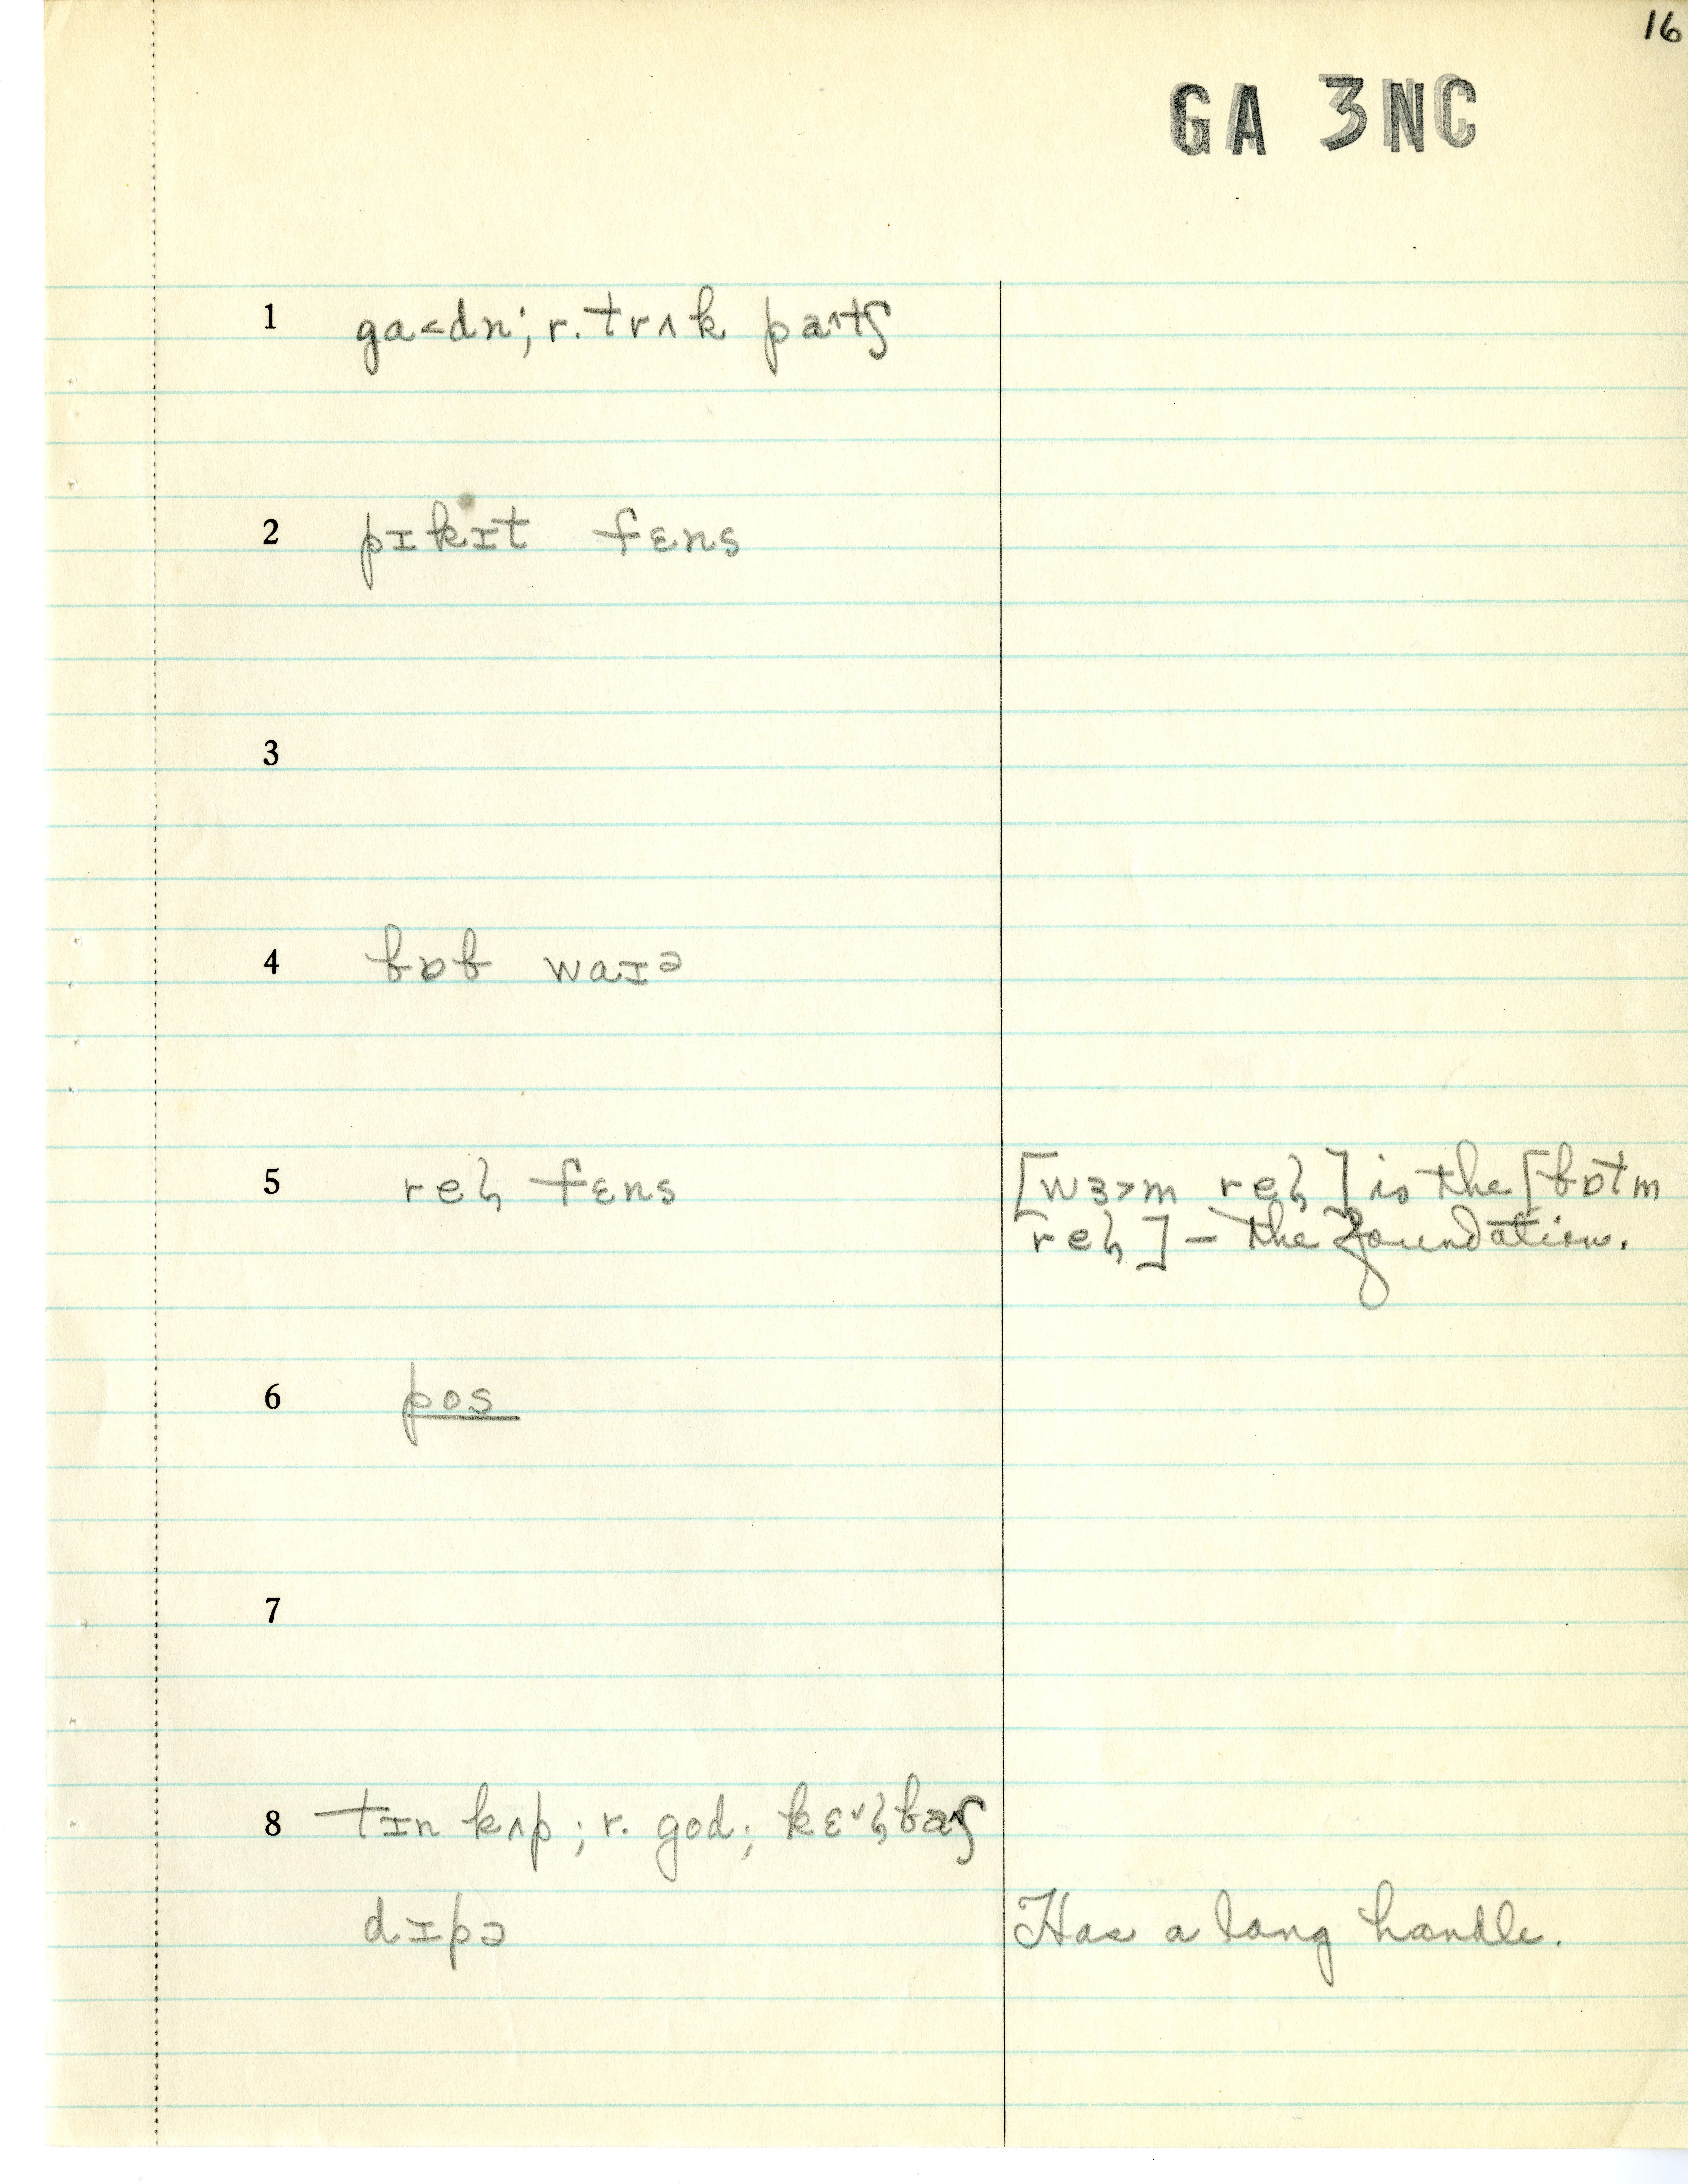 16
GA 3NC
1 ga˂dn; r. trʌk patʃ
2 pɪkɪt fɛns
3
4 bɒb waɪə
5 reɫ fɛns [wɜ˃m reɫ] is the [bɒtm
reɫ] — the foundation.
6 pos
7
8 tɪn kʌp; r. god; kɛ˅ɫbaʃ
dɪpə Has a long handle.